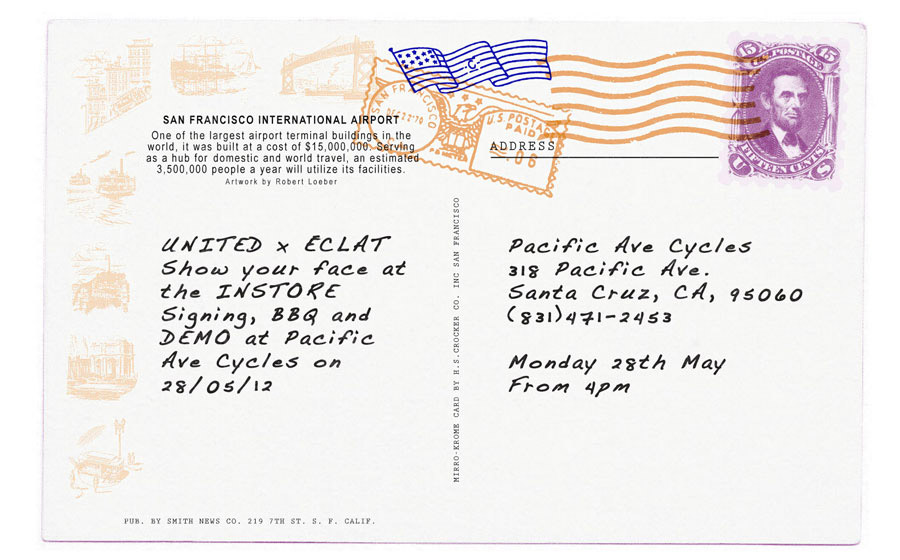 SAN FRANCISCO INTERNATIONAL AIRPORT
One of the largest airport terminal buildings in the
world, it was built at a cost of $15,000,000. Serving
as a hub for domestic and world travel, an estimated
3,500,000 people a year will utilize its facilities.
Artwork by Robert Loeber
SAN FRANCISCO
U.S. POSTAGE
PAID
.06
ADDRESS
15 U.S. POSTAGE 15
U FIFTEEN CENTS S
UNITED x ECLAT
Show your face at
the INSTORE
Signing, BBQ and
DEMO at Pacific
Ave Cycles on
28/05/12
MIRRO-KROME CARD BY H.S.CROCKER CO. INC SAN FRANCISCO
Pacific Ave Cycles
318 Pacific Ave.
Santa Cruz, CA, 95060
(831)471-2453
Monday 28th May
From 4pm
PUB. BY SMITH NEWS CO. 219 7TH ST. S. F. CALIF.